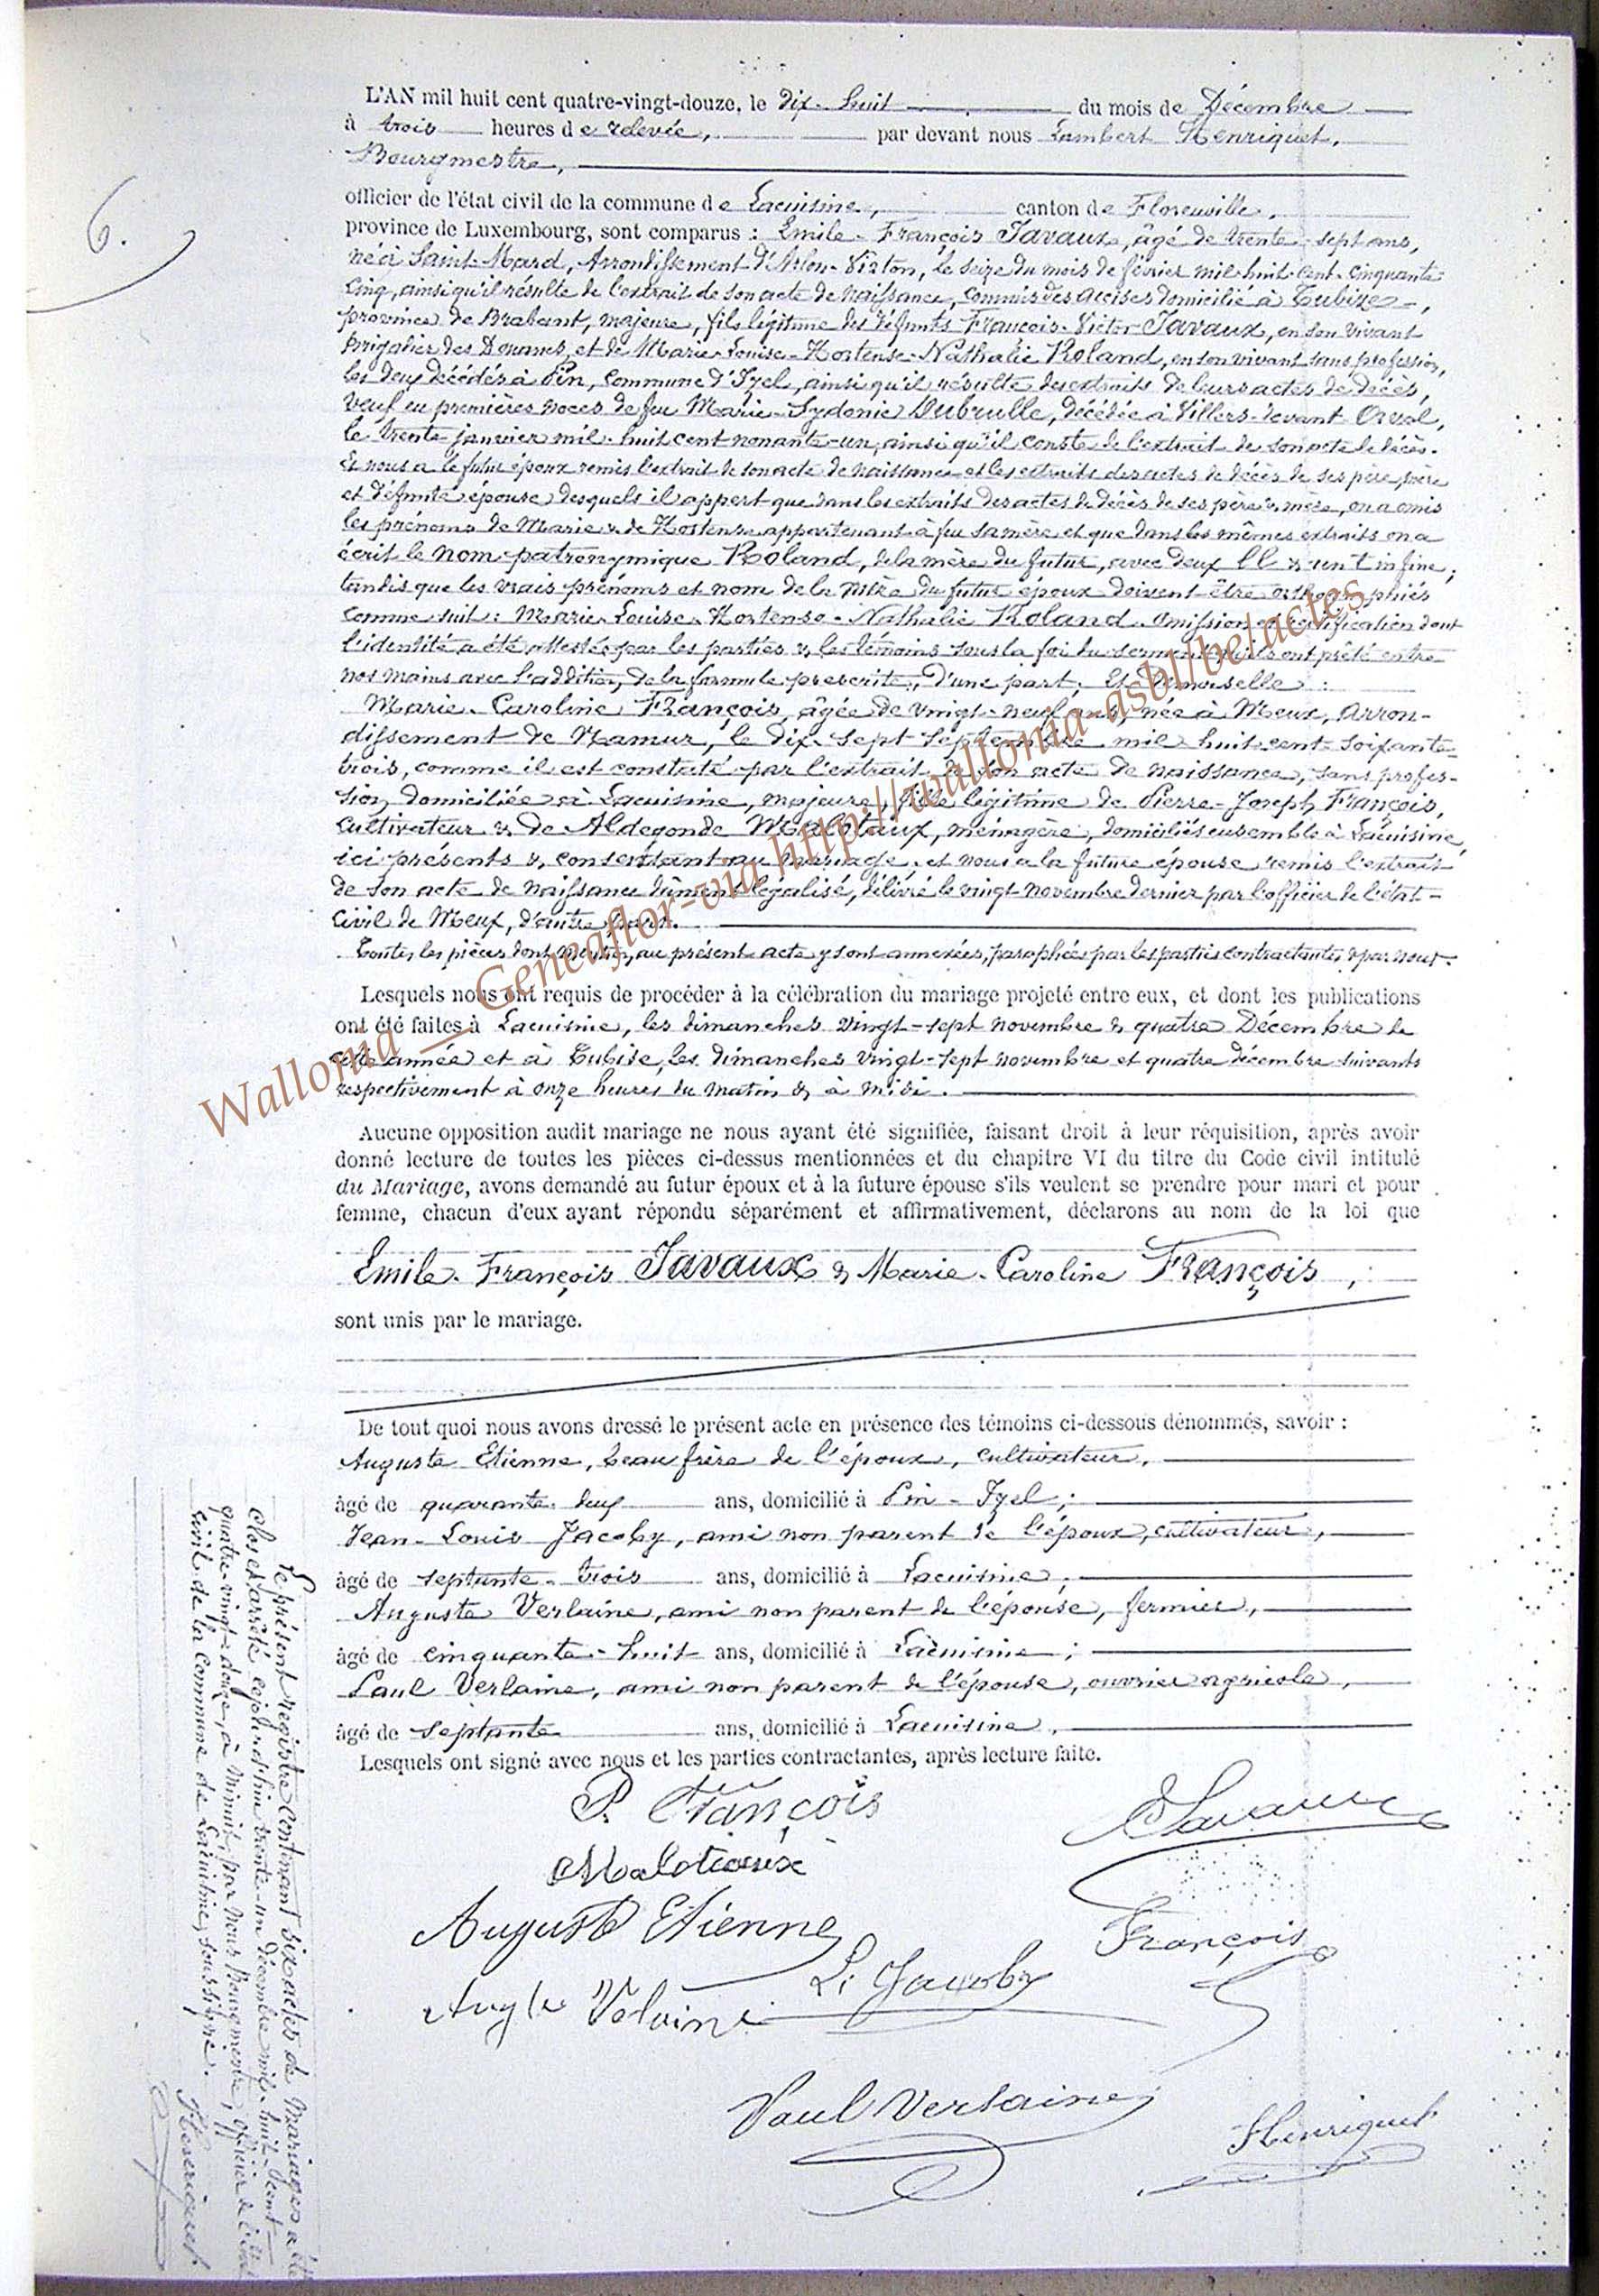 6.
L'AN mil huit cent quatre-vingt-douze, le dix-huit du mois de Décembre
à trois heures de relevée, par devant nous Lambert Henriquet,
Bourgmestre,
officier de l'état civil de la commune de Lacuisine, canton de Florenville,
province de Luxembourg, sont comparus : Emile-François Javaux, âgé de trente-sept ans,
né à Saint-Mard, Arrondissement d'Arlon-Virton, le seize du mois de février mil-huit-cent-cinquante-
cinq, ainsi qu'il résulte de l'extrait de son acte de naissance, commis des accises domicilié à Tubize,
province de Brabant, majeure, fils légitime des défunts François-Victor Javaux, en son vivant
brigadier des Douanes, et de Marie-Louise-Hortense-Nathalie Roland, en son vivant sans profession,
les deux décédés à Pin, commune d'Izel, ainsi qu'il résulte des extraits de leurs actes de décès,
veuf en premières noces de feu Marie-Sydonie Dubrulle, décédée à Villers-devant-Orval,
le trente janvier mil-huit cent nonante-un, ainsi qu'il conste de l'extrait de son acte de décès.
Et nous a le futur époux remis l'extrait de son acte de naissance et les extraits des actes de décès de ses père, mère
et défunte épouse, desquels il appert que dans les extraits des actes de décès de ses père & mère, on a omis
les prénoms de Marie & de Hortense appartenant à feu sa mère et que dans les mêmes extraits on a
écrit le nom patronymique Roland, de la mère du futur, avec deux ll & un t in fine,
tandis que les vrais prénoms et nom de la mère du futur époux doivent être orthographiés
comme suit : Marie-Louise-Hortense-Nathalie Roland. Omission et rectification dont
l'identité a été attestée par les parties & les témoins sous la foi du serment qu'ils ont prêté entre
nos mains avec l'addition de la formule prescrite, d'une part. Et Demoiselle :
Marie-Caroline François, âgée de vingt-neuf ans, née à Meux, arron-
dissement de Namur, le dix-sept septembre mil-huit-cent-soixante-
trois, comme il est constaté par l'extrait de son acte de naissance, sans profes-
sion, domiciliée à Lacuisine, majeure, fille légitime de Pierre-Joseph François,
cultivateur & de Aldegonde Malotiaux, ménagère, domiciliés ensemble à Lacuisine,
ici présents & consentant au mariage, et nous a la future épouse remis l'extrait
de son acte de naissance dûment légalisé, délivré le vingt novembre dernier par l'officier de l'état-
civil de Meux, d'autre part.
Toutes les pièces dont mention au présent acte y sont annexées, paraphées par les parties contractantes & par nous.
Lesquels nous ont requis de procéder à la célébration du mariage projeté entre eux, et dont les publications
ont été faites à Lacuisine, les dimanches vingt-sept novembre & quatre Décembre de
cette année et à Tubise, les dimanches vingt-sept novembre et quatre décembre suivants
respectivement à onze heures du matin & à midi.
Aucune opposition audit mariage ne nous ayant été signifiée, faisant droit à leur réquisition, après avoir
donné lecture de toutes les pièces ci-dessus mentionnées et du chapitre VI du titre du Code civil intitulé
du Mariage, avons demandé au futur époux et à la future épouse s'ils veulent se prendre pour mari et pour
femme, chacun d'eux ayant répondu séparément et affirmativement, déclarons au nom de la loi que
Emile-François Javaux & Marie-Caroline François,
sont unis par le mariage.
De tout quoi nous avons dressé le présent acte en présence des témoins ci-dessous dénommés, savoir :
Auguste Etienne, beau frère de l'époux, cultivateur,
âgé de quarante-deux ans, domicilié à Pin-Izel ;
Jean-Louis Jacoby, ami non parent de l'époux, cultivateur,
âgé de septante-trois ans, domicilié à Lacuisine ;
Auguste Verlaine, ami non parent de l'épouse, fermier,
âgé de cinquante-huit ans, domicilié à Lacuisine ;
Paul Verlaine, ami non parent de l'épouse, ouvrier agricole,
âgé de septante ans, domicilié à Lacuisine.
Lesquels ont signé avec nous et les parties contractantes, après lecture faite.
P. François
Javaux
Malotiaux
Auguste Etienne
François
L. Jacoby
Aug te Velaine
Paul Verlaine
Henriquet
Le présent registre contenant six actes de mariages a été
clos et arrêté cejourd'hui trente-un décembre mil-huit-cent-
quatre-vingt-douze, à minuit, par nous Bourgmestre, officier de l'état
civil de la commune de Lacuisine, soussigné.
Henriquet
Wallonia - Geneaflor-via http://wallonia-asbl/be/actes